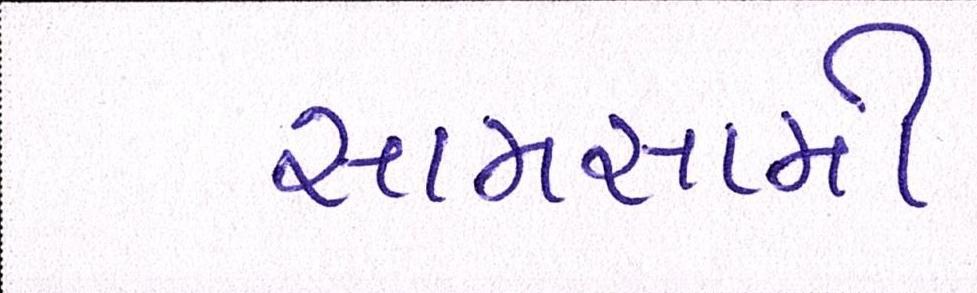 સામસામી